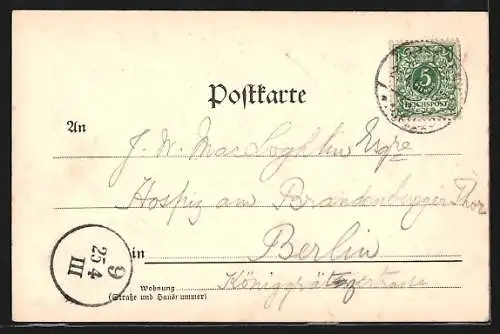 5
REICHSPOST
Postkarte
An
J. W. Mac Loghlin Esqre
Hospiz am Brandenburger Thor
in Berlin
Wohnung
(Straße und Hausnummer)
Königgrätzerstrasse
9
25 4
III